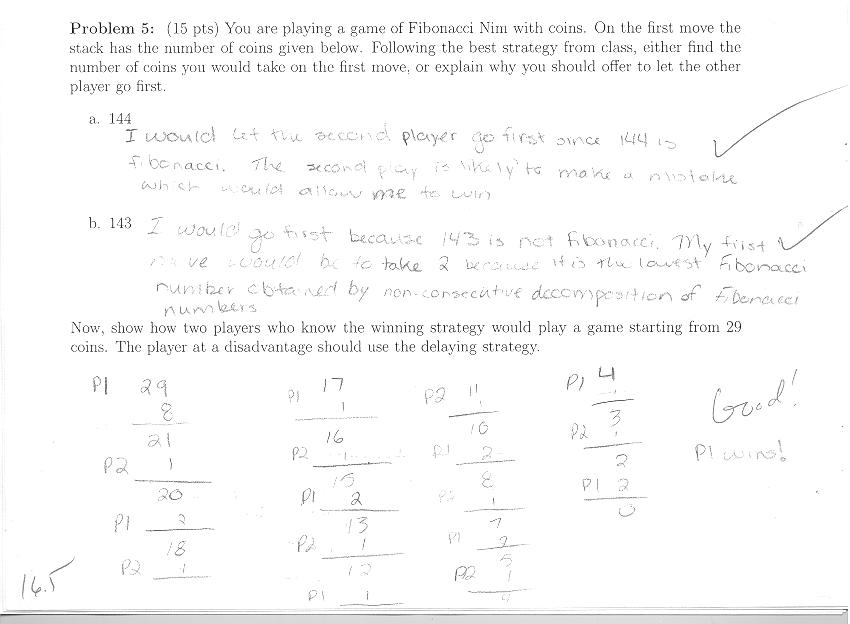 Problem 5: (15 pts) You are playing a game of Fibonacci Nim with coins. On the first move the
stack has the number of coins given below. Following the best strategy from class, either find the
number of coins you would take on the first move, or explain why you should offer to let the other
player go first.
a. 144
I would let the second player go first since 144 is
fibonacci. The second play is likely to make a mistake
which would allow me to win
b. 143 I would go first because 143 is not fibonacci. My first
move would be to take 2 because it is the lowest Fibonacci
number obtained by non-consecutive decomposition of Fibonacci
numbers
Now, show how two players who know the winning strategy would play a game starting from 29
coins. The player at a disadvantage should use the delaying strategy.
P1 29
8
21
P2 1
20
P1 2
18
P2 1
17
P1 1
16
P2 1
15
P1 2
13
P2 1
12
P1 1
P2 11
1
10
P1 2
8
P2 1
7
P1 2
5
P2 1
4
P1 4
1
3
P2 1
2
P1 2
0
Good!
P1 wins!
16.5